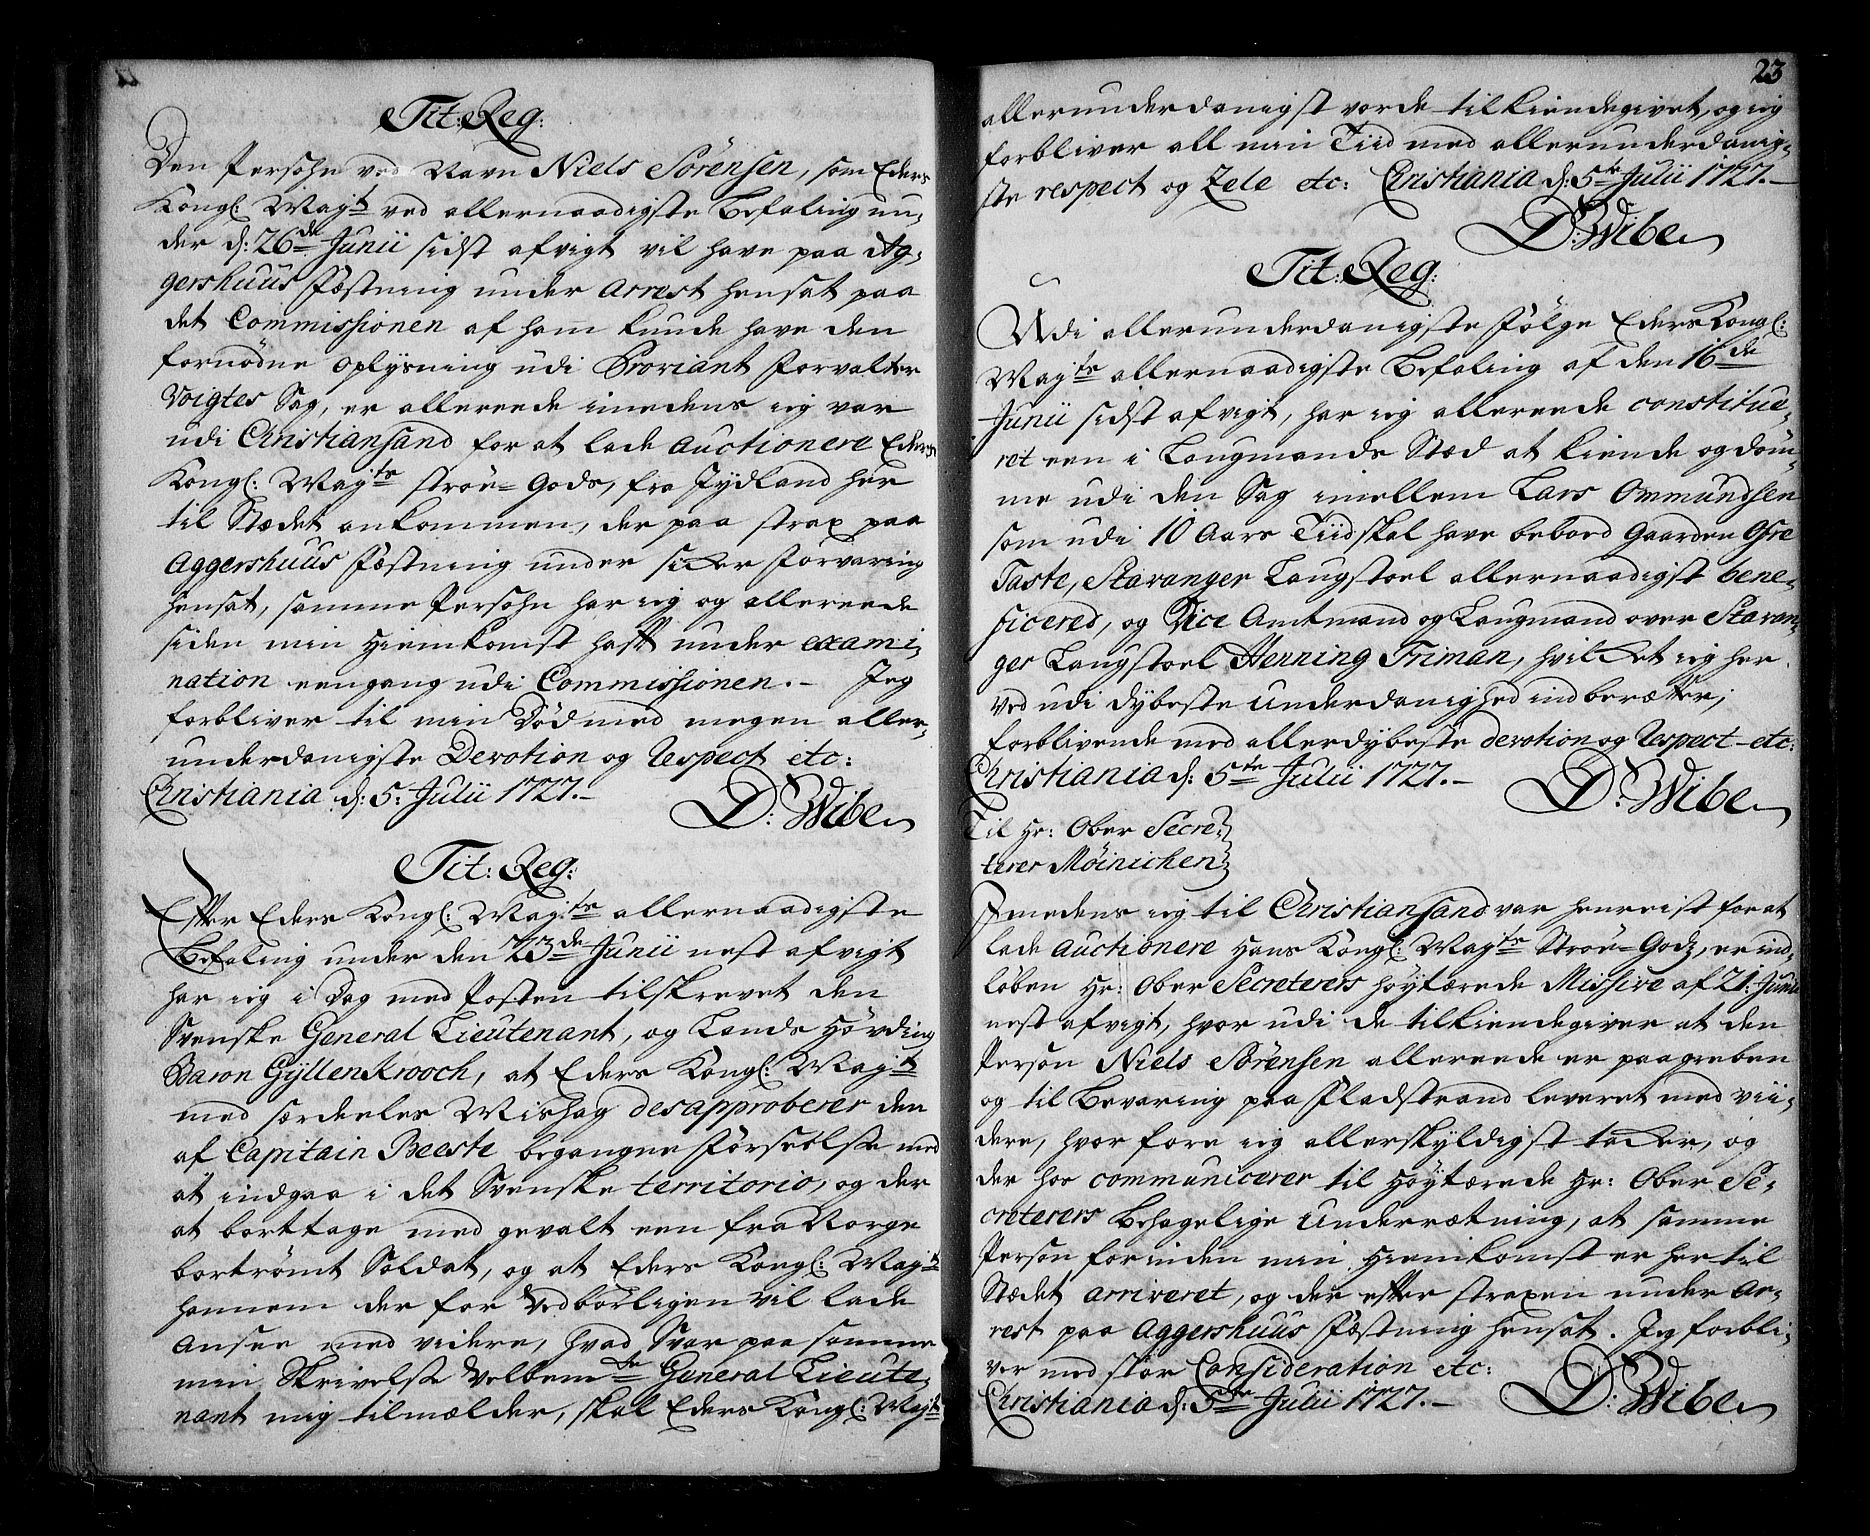 Tit: Reg:
Den Persohn ved Navn Niels Sörensen, som Eders
Kongl: Mayt ved allernaadigste Befaling un-
der d: 26de Junii sidst afvigt vil have paa Ag-
gershuus Fæstning under Arrest hensat paa
det Commissionen af ham kunde have den
fornødne oplysning udi Proviant Forvalter
Voigtes Sag, er allereede imedens jeg var
udi Christiansand for at lade auctionere Eders
Kongl: Mayts ströe-Gods, fra Jydland her
til Stædet ankommen, der paa strax paa
Aggershuus Fæstning under sicker Forvaring
hensat, samme Persohn har jeg og allereede
siden min Hiemkomst hafft under exami-
nation eengang udi Commissionen. - Jeg
forbliver til min Död med megen aller-
underdanigste Devotion og Respect etc:
Christiania d: 5: Julii 1727. -
D: Wibe
Tit: Reg:
Effter Eders Kongl: Mayts allernaadigste
Befaling under den 23de Junii nest afvigt
har jeg i Dag med Posten tilskrevet den
Svenske General Lieutenant, og Lands Hövding
Baron Gyllenkrooch, at Eders Kongl: Mayt
med særdeeles Mishag desapproberer den
af Capitain Beeste begangne Forseelse med
at indgaa i det Svenske territorio, og der
at borttage med gevalt een fra Norge
bortrömt Soldat, og at Eders Kongl: Mayt
hannem der for vedbörligen vil lade
ansee med videre, hvad Svar paa samme
min Skrivelse Velbemte General Lieute-
nant mig tilmælder, skal Eders Kongl: Mayt
23
allerunderdanigst vorde tilkiendegivet, og jeg
forbliver all min Tiid med allerunderdanig-
ste respect og Zele etc: Christiania d: 5te Julii 1727. -
D: Wibe
Tit: Reg:
Udi allerunderdanigste Fölge Eders Kongl:
Mayts allernaadigste Befaling af den 16de
Junii sidst afvigt, har jeg allereede constitue-
ret een i Laugmands Stæd at kiende og döm-
me udi den Sag imellem Lars Ommundsen
som udi 10 Aars Tiid skal have beboed Gaarden Gre
Taste, Stavanger Laugstoel allernaadigst bene-
ficered, og Vice Amtmand og Laugmand over Stavan-
ger Laugstoel Henning Friman, hvilcket jeg her
ved udi dybeste underdanighed indberætter,
forblivende med allerdybeste devotion og Respect etc:
Christiania d: 5te Julii 1727. -
D: Wibe
Til Hr: Ober Secre-
terer Möinichen
Imedens jeg til Christiansand var henreist for at
lade auctionere Hans Kongl: Mayts Ströe-Godz, er ind-
löben Hr: Ober Secreterers höytærede Missive af 21: Junii
nest afvigt, hvor udi de tilkiendegiver at den
Person Niels Sörensen allereede er paagreben
og til Bevaring paa Fladstrand leveret med vii-
dere, hvor fore jeg allerskyldigst tacker, og
der hos communicerer til Höytærede Hr: Ober Se-
creterers behagelige Underrætning, at samme
Person forinden min Hiemkomst er her til
Stædet arriveret, og der effter straxen under Ar-
rest paa Aggershuus Fæstning hensat. Jeg forbli-
ver med stor Consideration etc:
Christiania d: 5te Julii 1727. -
D: Wibe